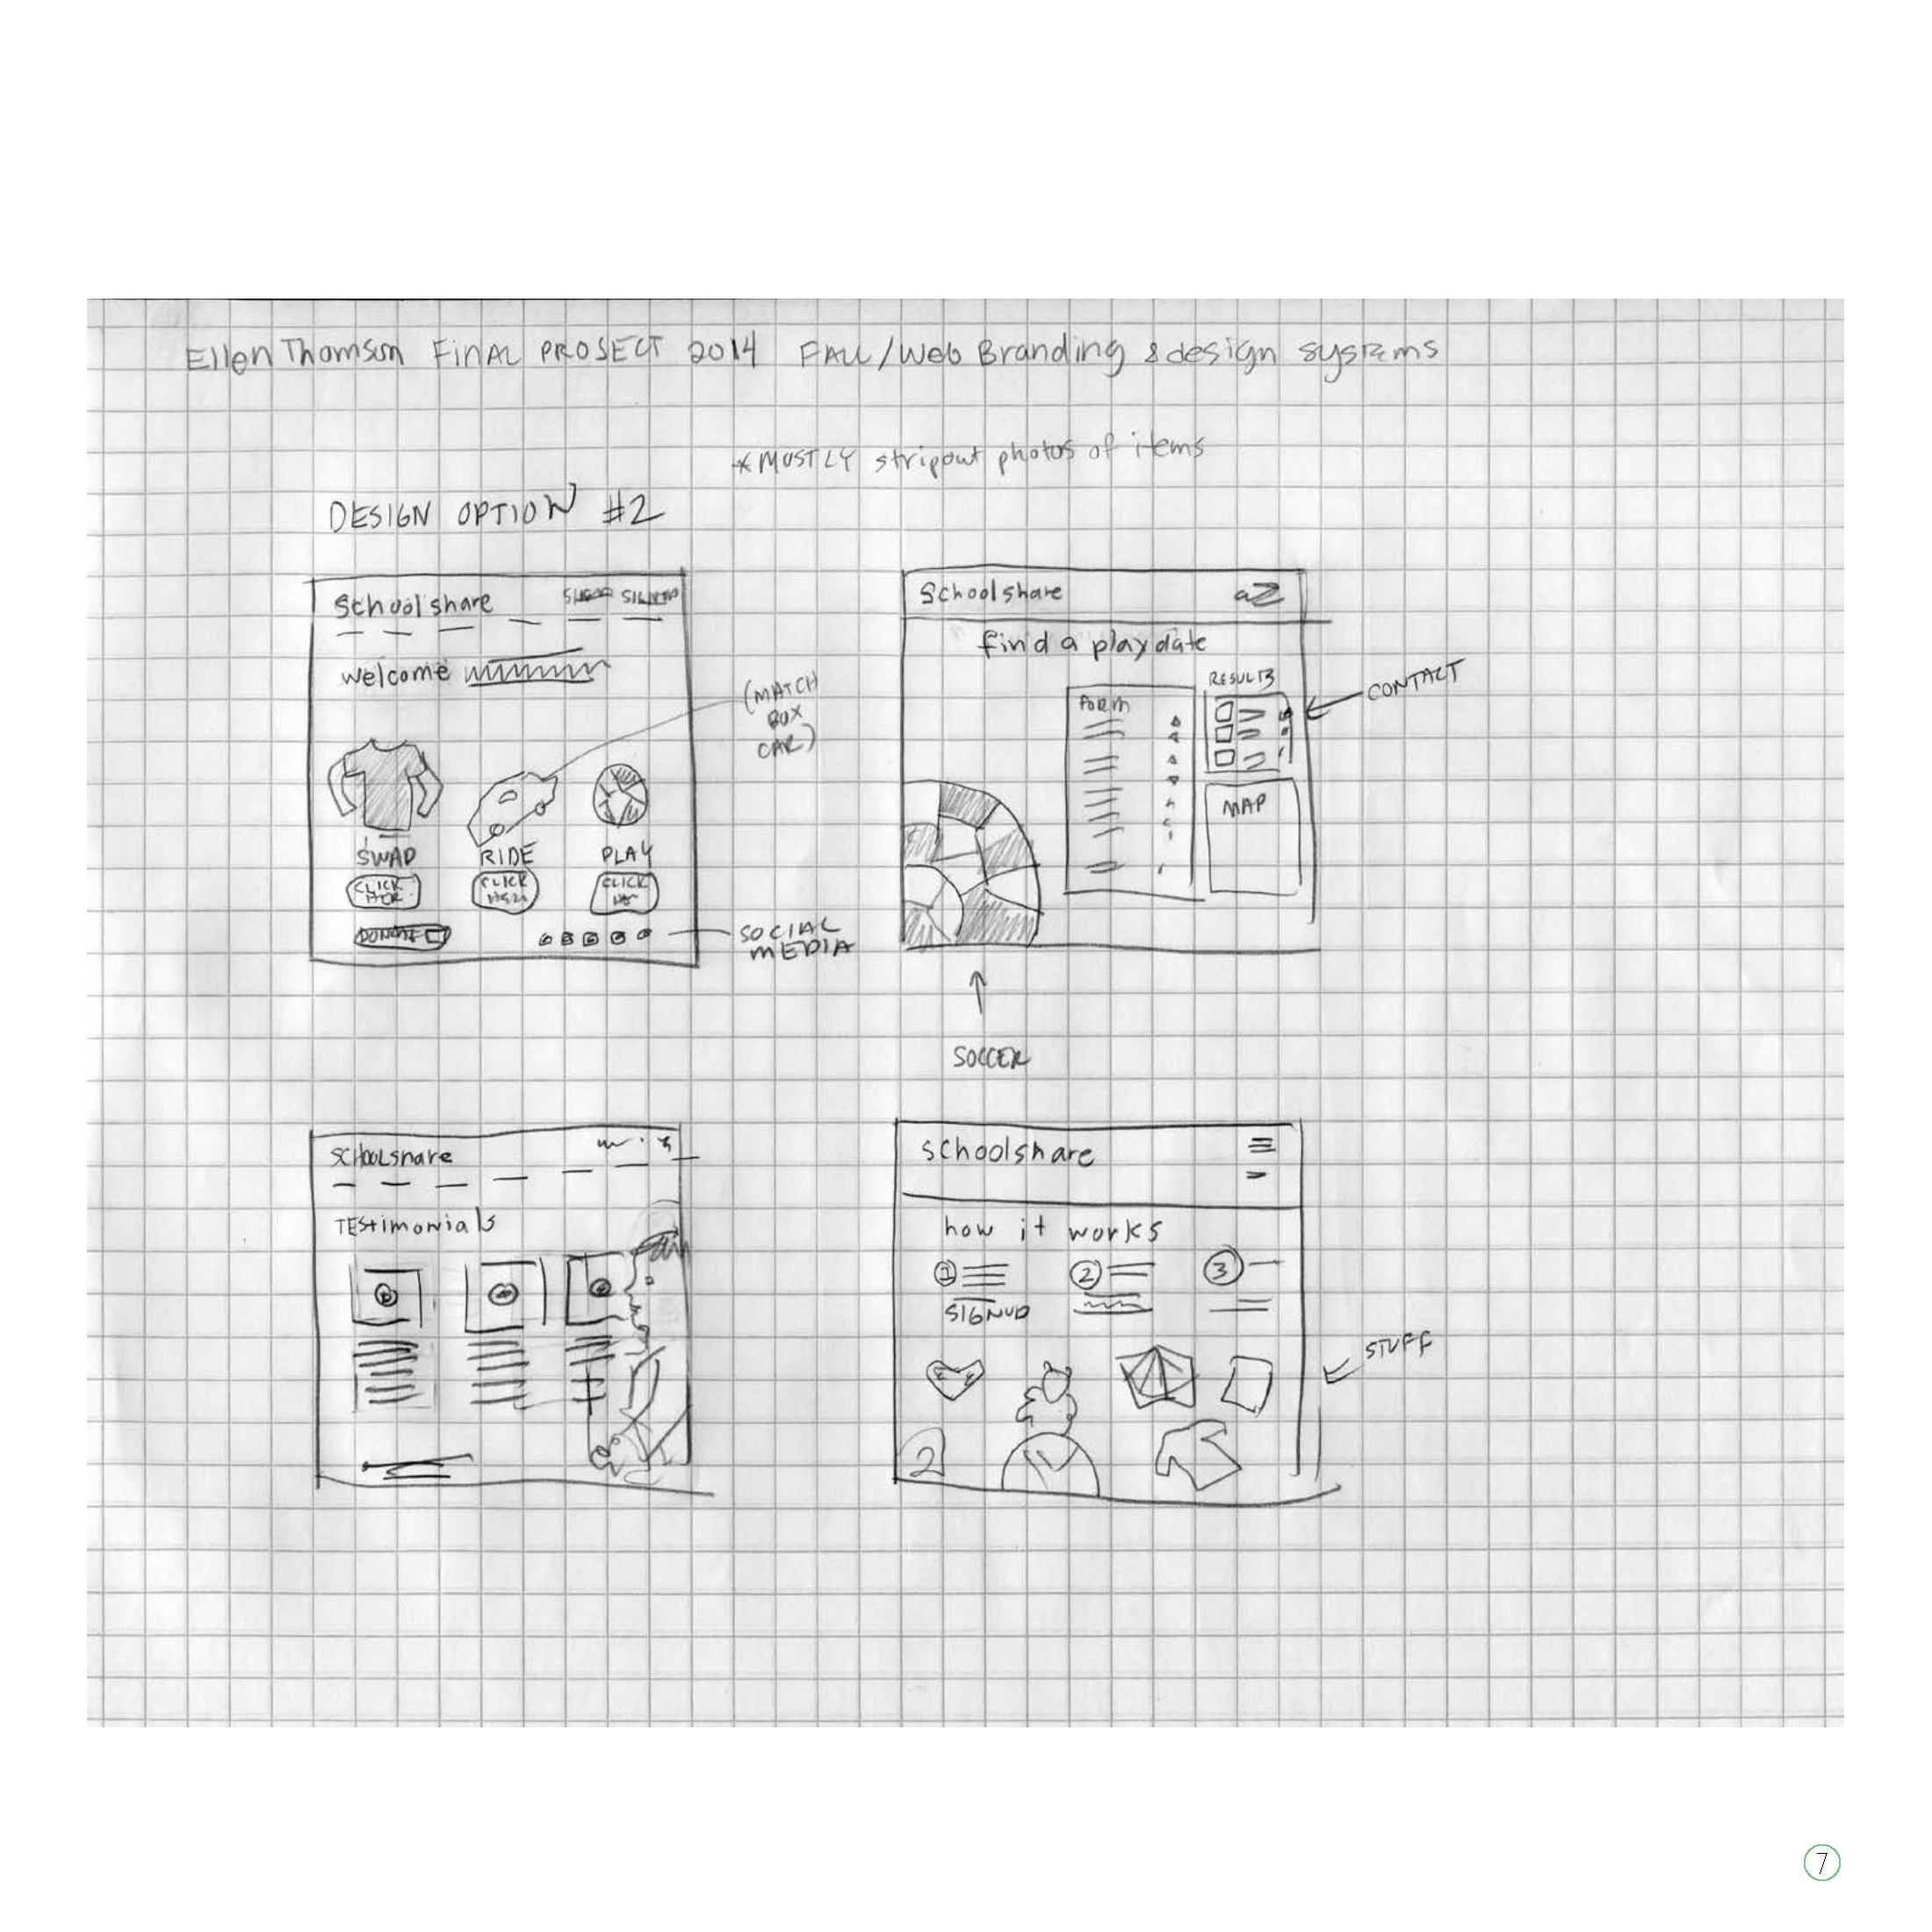 Ellen Thomson FINAL PROJECT 2014 FALL/Web Branding & design systems
*MOSTLY stripout photos of items
DESIGN OPTION #2
Schoolshare
SIGNUP
welcome
(MATCH
BOX
CAR)
SWAP
RIDE
PLAY
CLICK
HER
CLICK
HERE
CLICK
DONATE
SOCIAL
MEDIA
Schoolshare
find a playdate
FORM
RESULTS
MAP
CONTACT
SOCCER
SCHOOLShare
TEStimonials
schoolshare
how it works
1
2
3
SIGNUP
2
STUFF
7